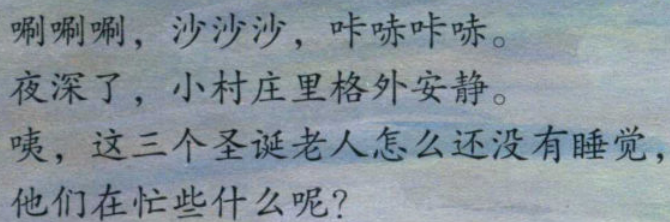 唰唰唰，沙沙沙，咔哧咔哧。
夜深了，小村庄里格外安静。
咦，这三个圣诞老人怎么还没有睡觉，
他们在忙些什么呢？